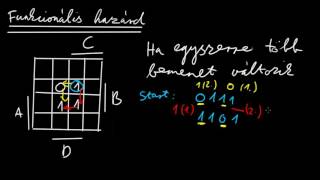 Funkcionális hazárd
C
0 1
1 1
A
B
D
Ha egyszerre több
bemenet változik
1(2.) 0(1.)
Start: 0 1 1 1
1(1) (2.)
1 1 0 1